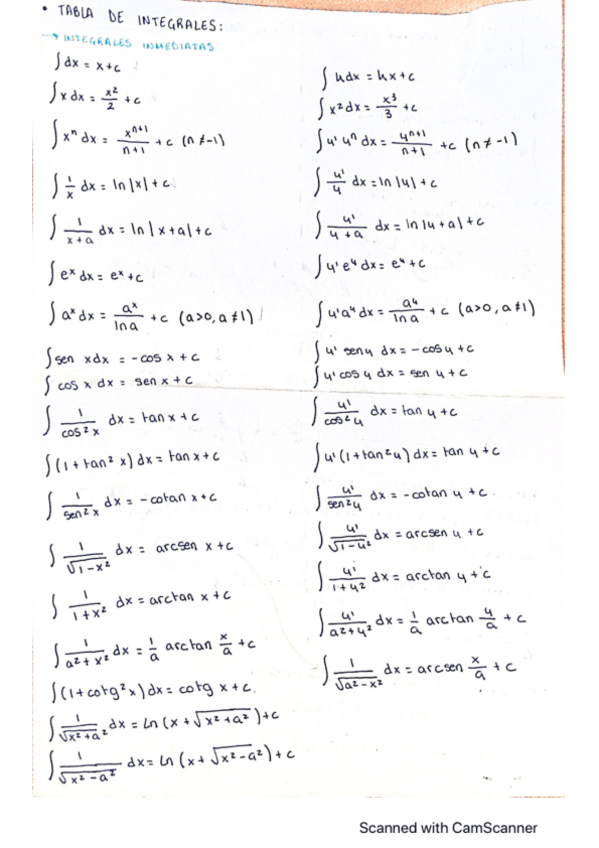 • TABLA DE INTEGRALES:
→ INTEGRALES INMEDIATAS
∫dx = x+c
∫x dx = x²/2 + c
∫xⁿ dx = xⁿ⁺¹/n+1 + c (n ≠ -1)
∫ 1/x dx = ln|x| + c
∫ 1/x+a dx = ln|x+a| + c
∫eˣ dx = eˣ + c
∫aˣ dx = aˣ/ln a + c (a>0, a≠1)
∫sen xdx = -cos x + c
∫ cos x dx = sen x + c
∫ 1/cos²x dx = tan x + c
∫(1 + tan² x) dx = tan x + c
∫ 1/sen²x dx = -cotan x + c
∫ 1/√1-x² dx = arcsen x + c
∫ 1/1+x² dx = arctan x + c
∫ 1/a²+x² dx = 1/a arctan x/a + c
∫(1+cotg²x) dx = cotg x + c.
∫ 1/√x²+a² dx = Ln (x + √x²+a²) + c
∫ 1/√x²-a² dx = Ln (x + √x²-a²) + c
∫ kdx = kx + c
∫x² dx = x³/3 + c
∫u' uⁿ dx = uⁿ⁺¹/n+1 + c (n ≠ -1)
∫ u'/u dx = ln|u| + c
∫ u'/u+a dx = ln|u+a| + c
∫u' eᵘ dx = eᵘ + c
∫u' aᵘ dx = aᵘ/ln a + c (a>0, a≠1)
∫u' sen u dx = -cos u + c
∫u' cos u dx = sen u + c
∫ u'/cos²u dx = tan u + c
∫u' (1+tan²u) dx = tan u + c
∫ u'/sen²u dx = -cotan u + c
∫ u'/√1-u² dx = arcsen u + c
∫ u'/1+u² dx = arctan u + c
∫ u'/a²+u² dx = 1/a arctan u/a + c
∫ 1/√a²-x² dx = arcsen x/a + c
Scanned with CamScanner